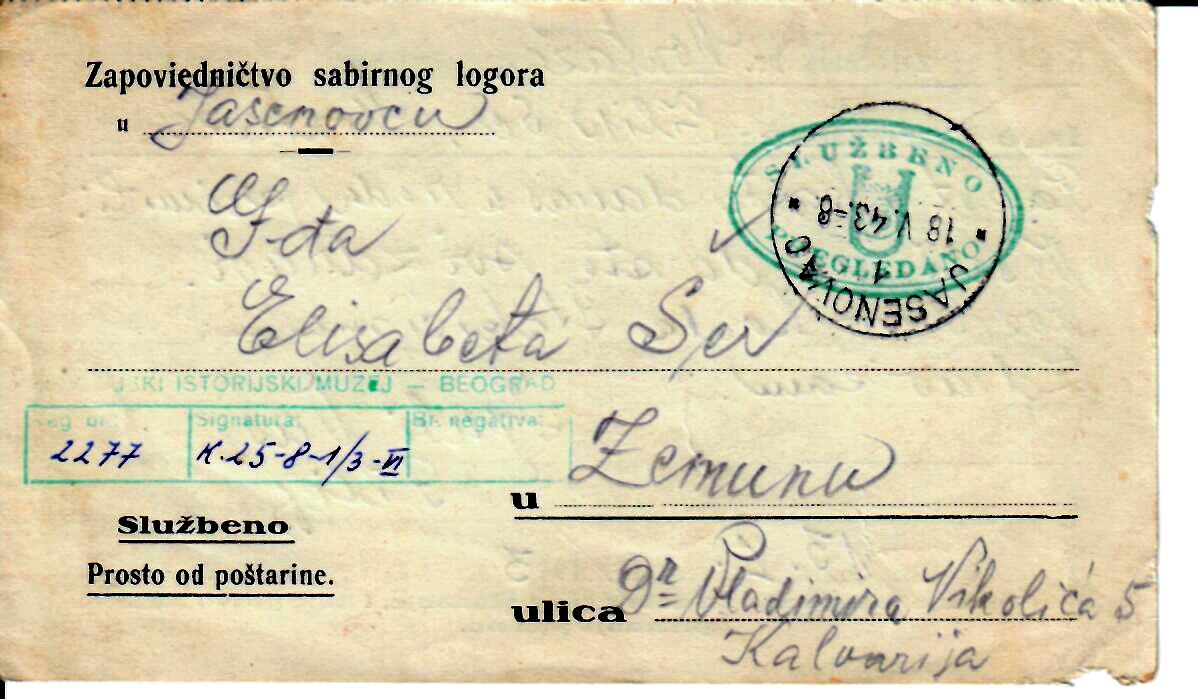 Zapovjedničtvo sabirnog logora
u Jasenovcu
SLUŽBENO
U
PREGLEDANO
18 V. 43.-8
1
JASENOVAC
G-đa
Elisabeta
JSKI ISTORIJSKI MUZEJ — BEOGRAD
Signatura: Br. negativa:
2277 K. 25-8-1/3-VI
u Zemunu
Službeno
Prosto od poštarine.
ulica Dr Vladimira Nikolića 5
Kalvarija